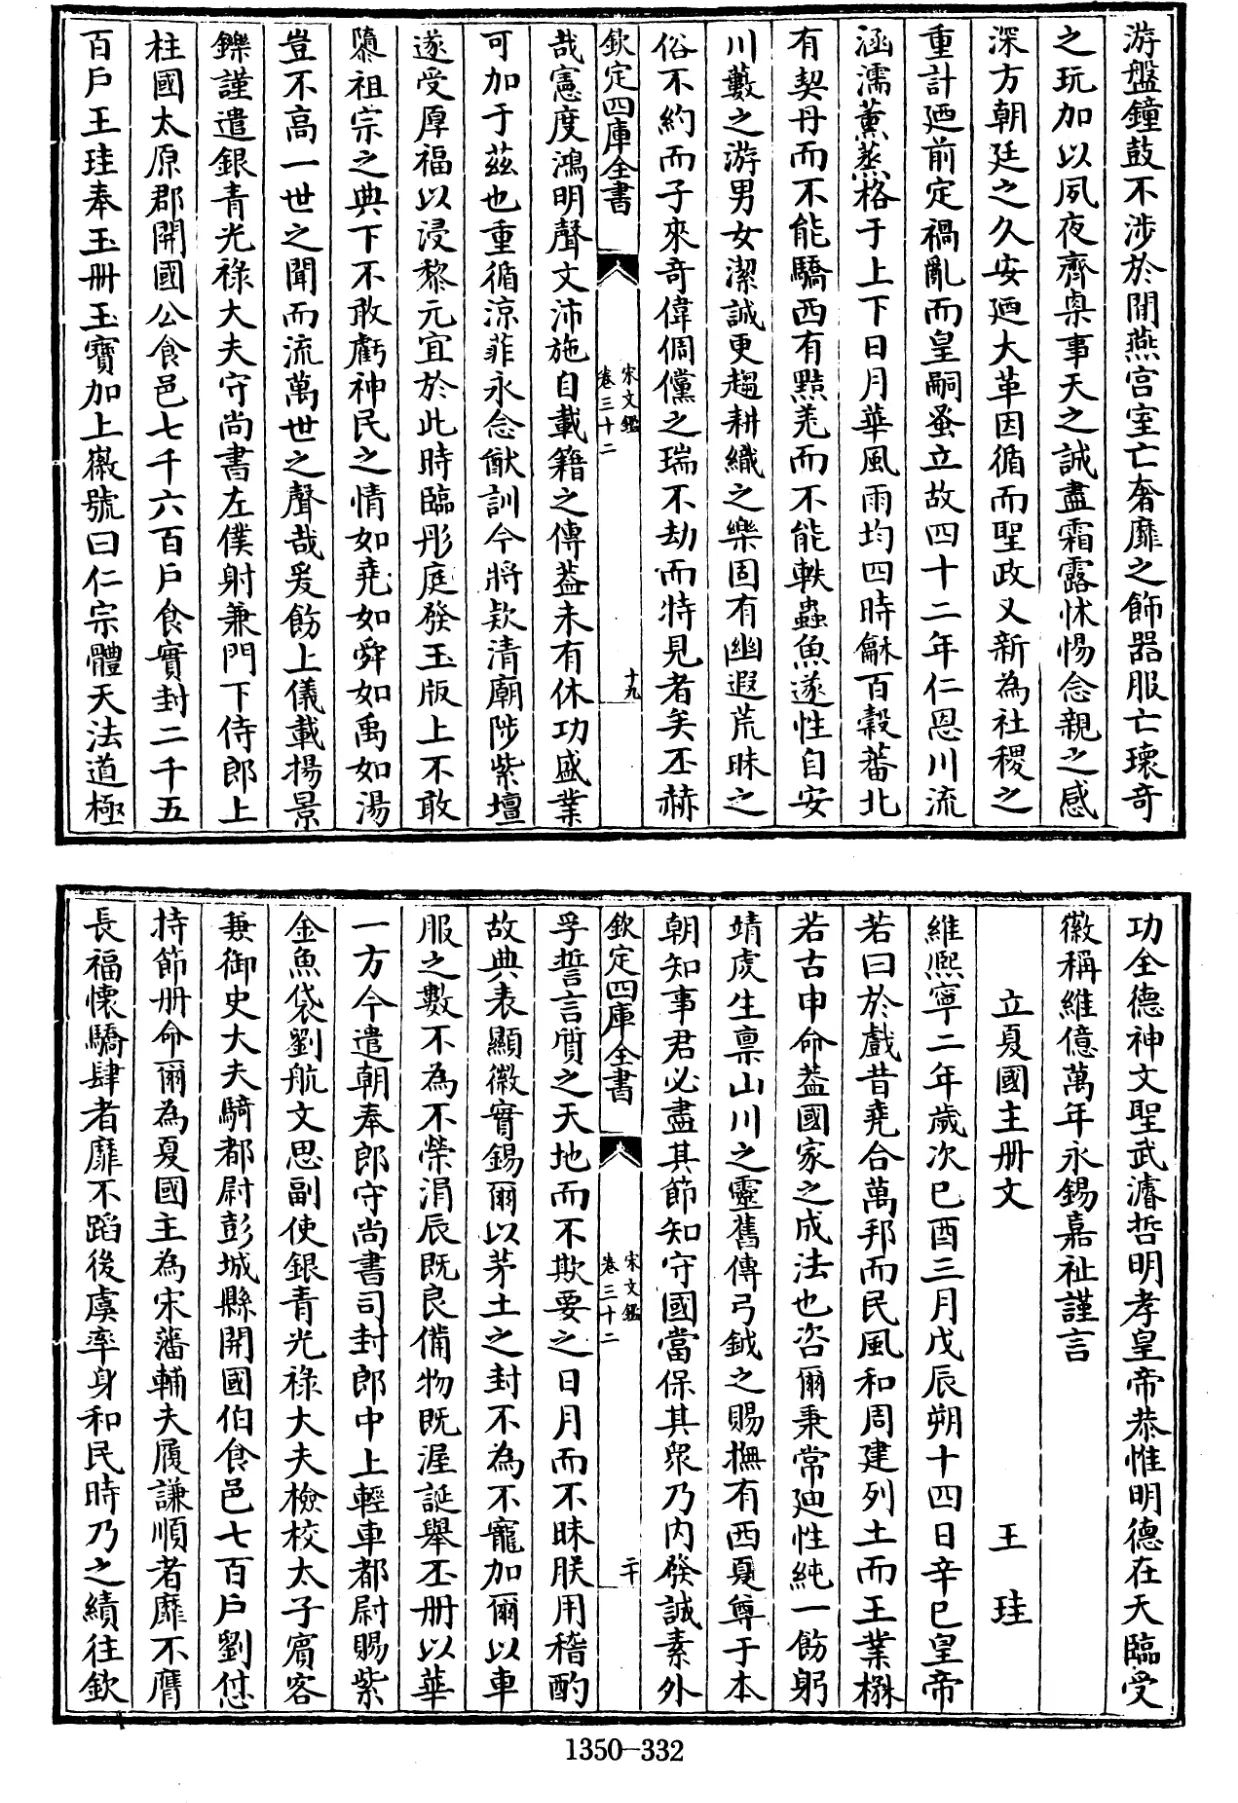 游盤鐘鼓不涉於閒燕宮室亡奢靡之飾器服亡瓌奇
之玩加以夙夜齊𠅤事天之誠盡霜露怵惕念親之感
深方朝廷之久安廼大革因循而聖政又新為社稷之
重計廼前定禍亂而皇嗣蚤立故四十二年仁恩川流
涵濡薰蒸格于上下日月華風雨均四時龢百穀蕃北
有契丹而不能驕西有黠羌而不能軼蟲魚遂性自安
川藪之游男女潔誠更趨耕織之樂固有幽遐荒昧之
俗不約而子來奇偉倜儻之瑞不劫而特見者矣丕赫
欽定四庫全書
宋文鑑
卷三十二
十九
哉憲度鴻明聲文沛施自載籍之傳葢未有休功盛業
可加于茲也重循涼菲永念猷訓今將欵清廟陟紫壇
遂受厚福以浸黎元宜於此時臨彤庭發玉版上不敢
隳祖宗之典下不敢虧神民之情如堯如舜如禹如湯
豈不高一世之聞而流萬世之聲哉爰飭上儀載揚景
鑠謹遣銀青光祿大夫守尚書左僕射兼門下侍郎上
柱國太原郡開國公食邑七千六百户食實封二千五
百户王珪奉玉冊玉寶加上徽號曰仁宗體天法道極
功全德神文聖武濬哲明孝皇帝恭惟明德在天臨受
徽稱維億萬年永錫嘉祉謹言
立夏國主冊文 王珪
維熈寧二年歲次己酉三月戊辰朔十四日辛巳皇帝
若曰於戲昔堯合萬邦而民風和周建列土而王業楙
若古申命葢國家之成法也咨爾秉常廸性純一飭躬
靖䖍生禀山川之靈舊傳弓鉞之賜撫有西夏尊于本
朝知事君必盡其節知守國當保其衆乃内發誠素外
欽定四庫全書
宋文鑑
卷三十二
二十
孚誓言質之天地而不欺要之日月而不昧朕用稽酌
故典表顯徽實錫爾以茅土之封不為不寵加爾以車
服之數不為不榮涓辰既良備物既渥誕舉丕冊以華
一方今遣朝奉郎守尚書司封郎中上輕車都尉賜紫
金魚袋劉航文思副使銀青光祿大夫檢校太子賓客
兼御史大夫騎都尉彭城縣開國伯食邑七百户劉怤
持節冊命爾為夏國主為宋藩輔夫履謙順者靡不膺
長福懷驕肆者靡不蹈後虞率身和民時乃之績往欽
1350-332